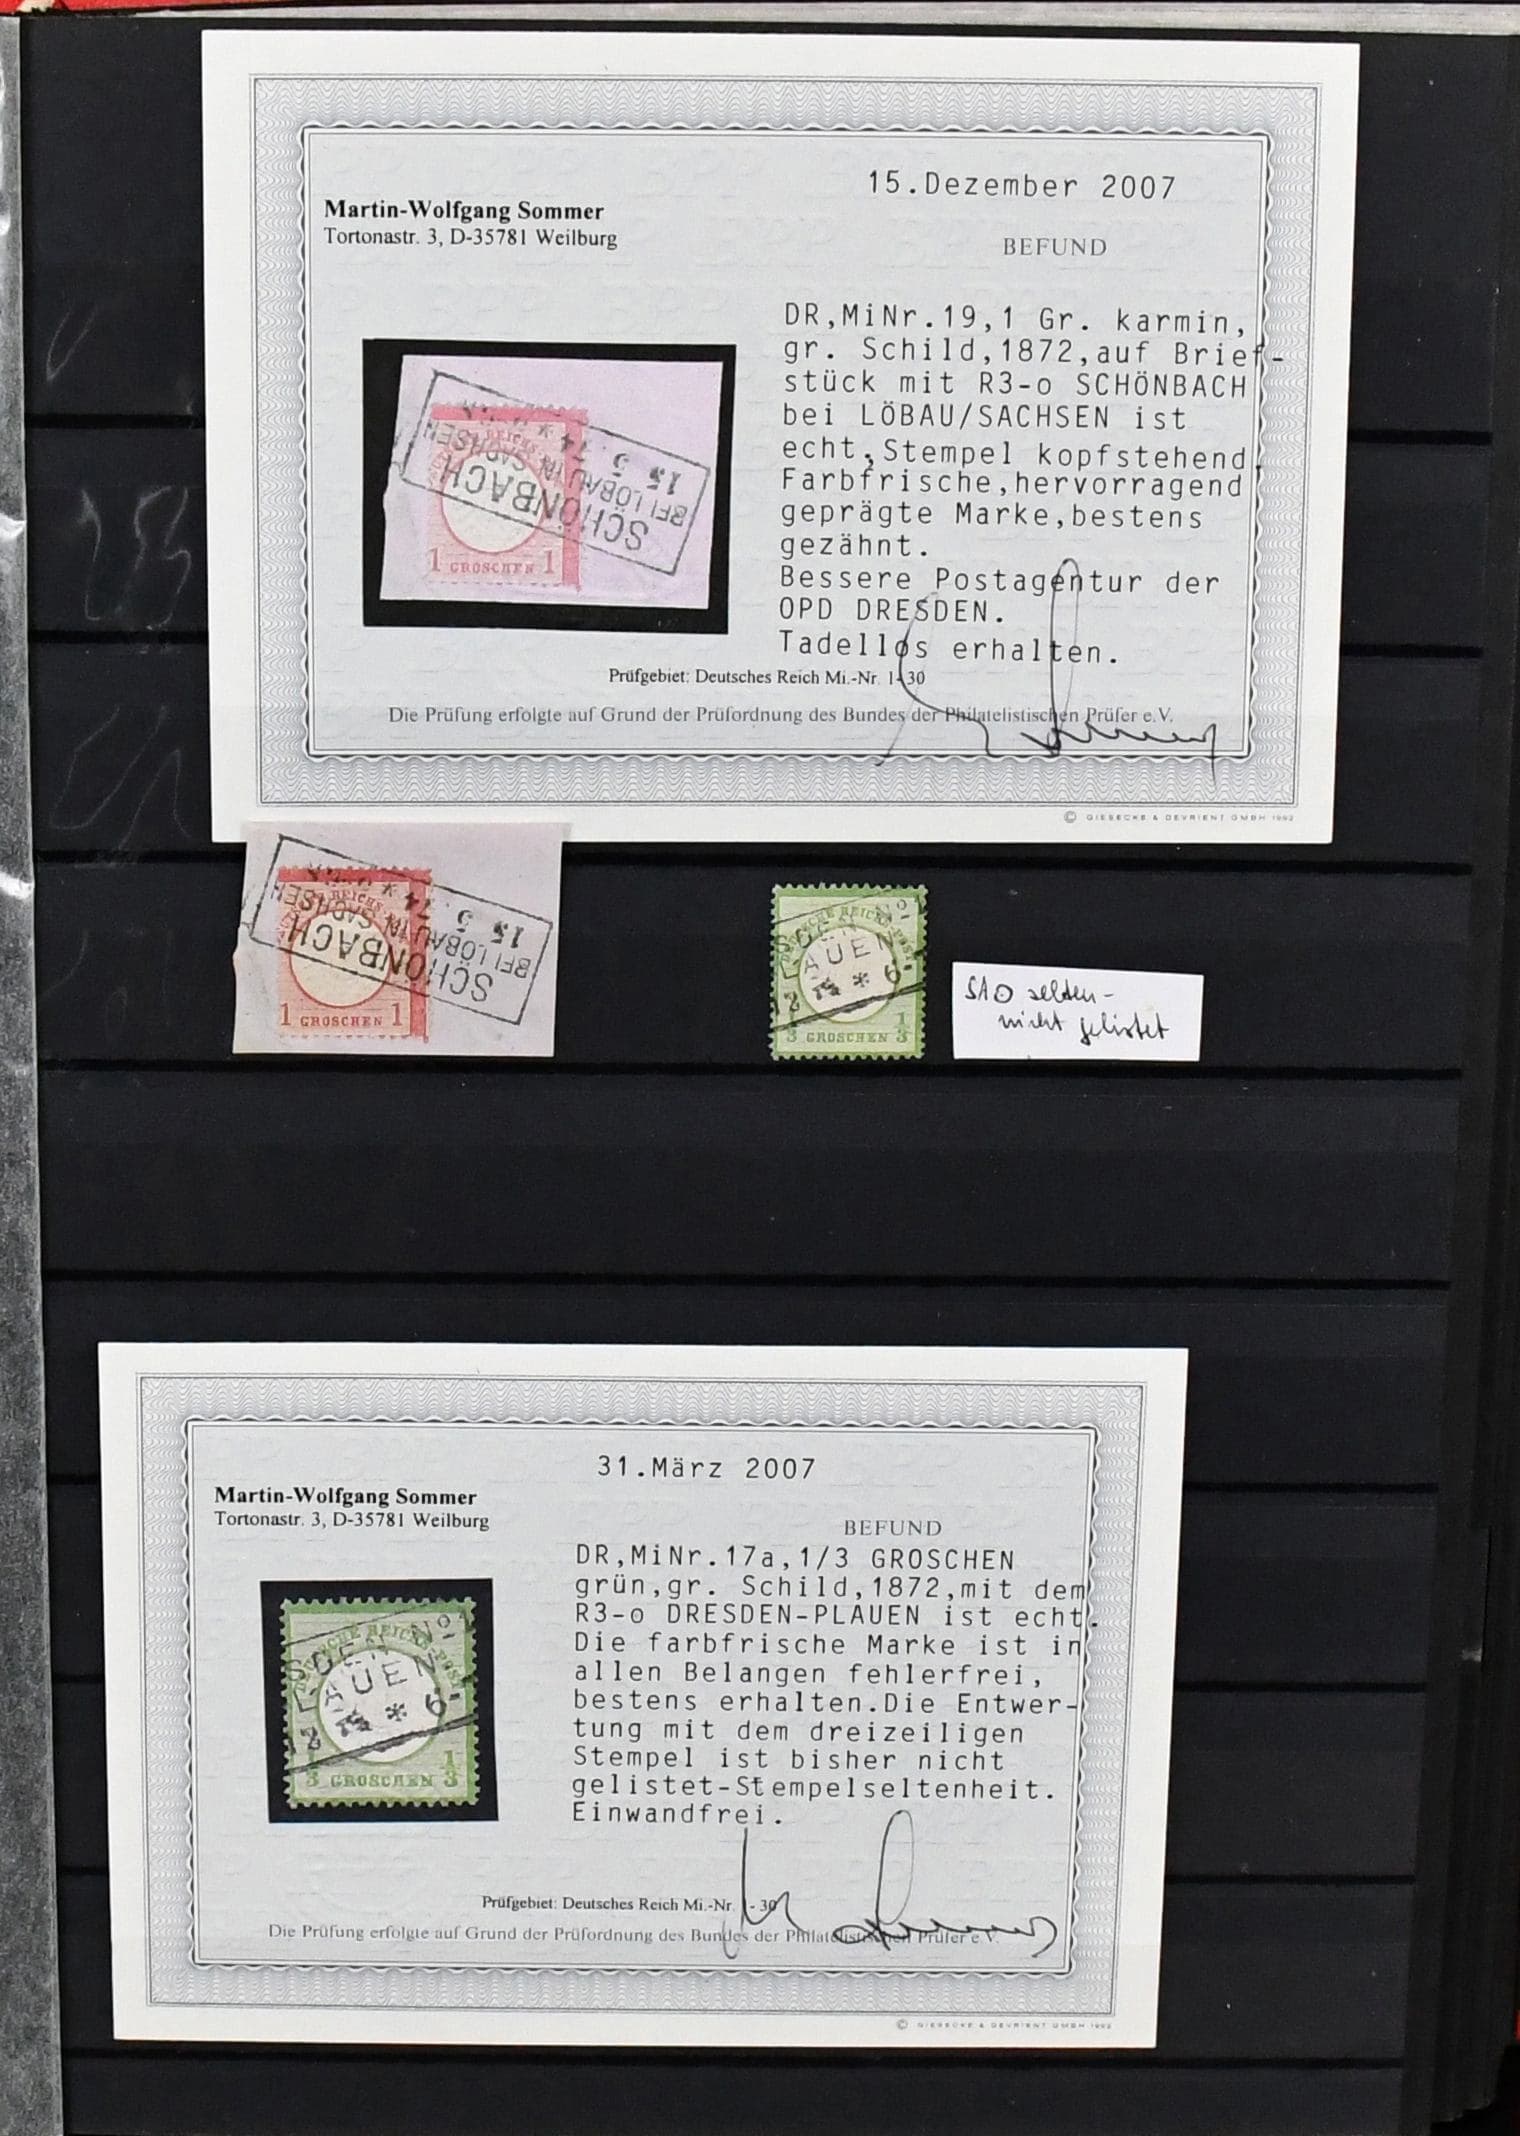 15.Dezember 2007
Martin-Wolfgang Sommer
Tortonastr. 3, D-35781 Weilburg
BEFUND
DR,MiNr.19,1 Gr. karmin,
gr. Schild,1872,auf Brief-
stück mit R3-o SCHÖNBACH
bei LÖBAU/SACHSEN ist
echt,Stempel kopfstehend.
Farbfrische,hervorragend
geprägte Marke,bestens
gezähnt.
Bessere Postagentur der
OPD DRESDEN.
Tadellos erhalten.
SCHÖNBACH
BEI LÖBAU IN SACHSEN
15 5 74 *
1 GROSCHEN 1
Prüfgebiet: Deutsches Reich Mi.-Nr. 1-30
Die Prüfung erfolgte auf Grund der Prüfordnung des Bundes der Philatelistischen Prüfer e.V.
© GIESECKE & DEVRIENT GMBH 1992
SCHÖNBACH
BEI LÖBAU IN SACHSEN
15 5 74 *
1 GROSCHEN 1
DEUTSCHE REICHS-POST
1/3 GROSCHEN 1/3
selten-
nicht gelistet
31.März 2007
Martin-Wolfgang Sommer
Tortonastr. 3, D-35781 Weilburg
BEFUND
DR,MiNr.17a,1/3 GROSCHEN
grün,gr. Schild,1872,mit dem
R3-o DRESDEN-PLAUEN ist echt.
Die farbfrische Marke ist in
allen Belangen fehlerfrei,
bestens erhalten.Die Entwer-
tung mit dem dreizeiligen
Stempel ist bisher nicht
gelistet-Stempelseltenheit.
Einwandfrei.
DEUTSCHE REICHS-POST
1/3 GROSCHEN 1/3
Prüfgebiet: Deutsches Reich Mi.-Nr. 1-30
Die Prüfung erfolgte auf Grund der Prüfordnung des Bundes der Philatelistischen Prüfer e.V.
© GIESECKE & DEVRIENT GMBH 1992